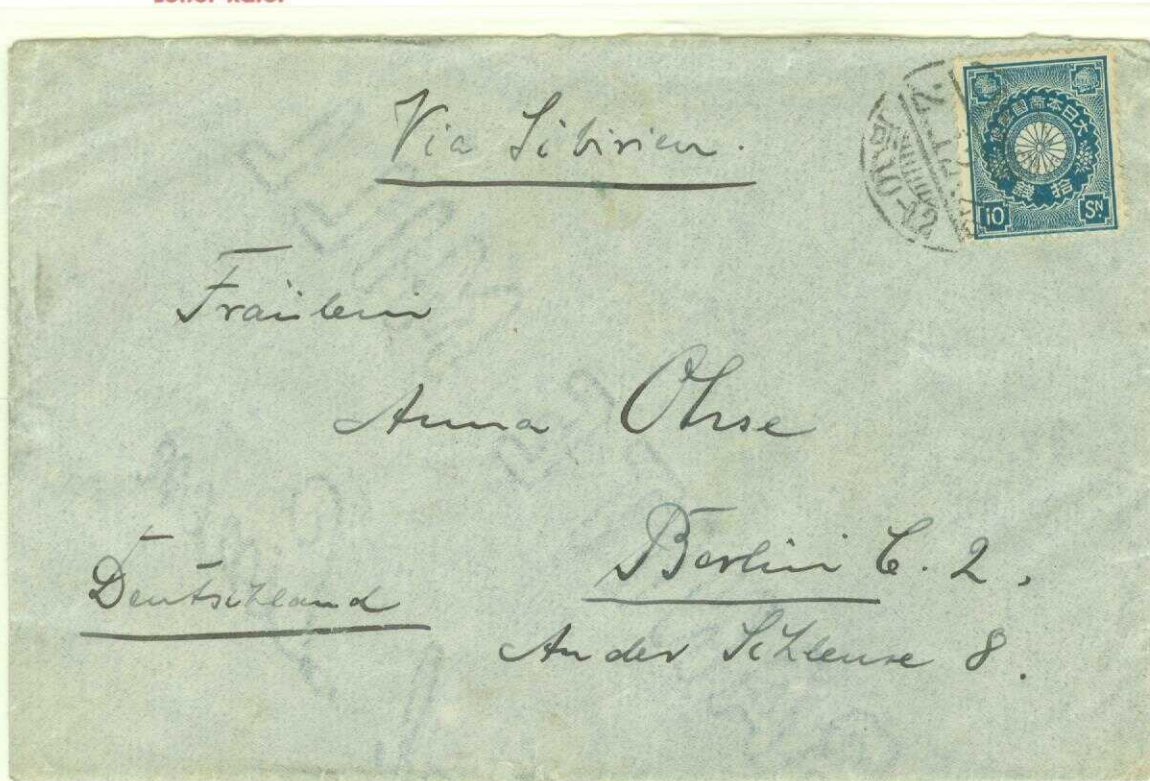 Via Sibirien.
大日本帝國郵便
拾錢
10 SN
Fräulein
Anna Ohse
Berlin C. 2.
Deutschland
An der Schleuse 8.